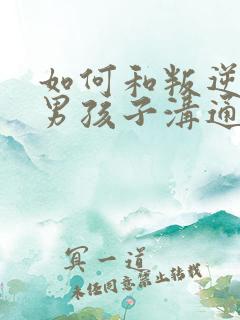 如何和叛逆
男孩子溝通
冥一道
未经同意禁止转载